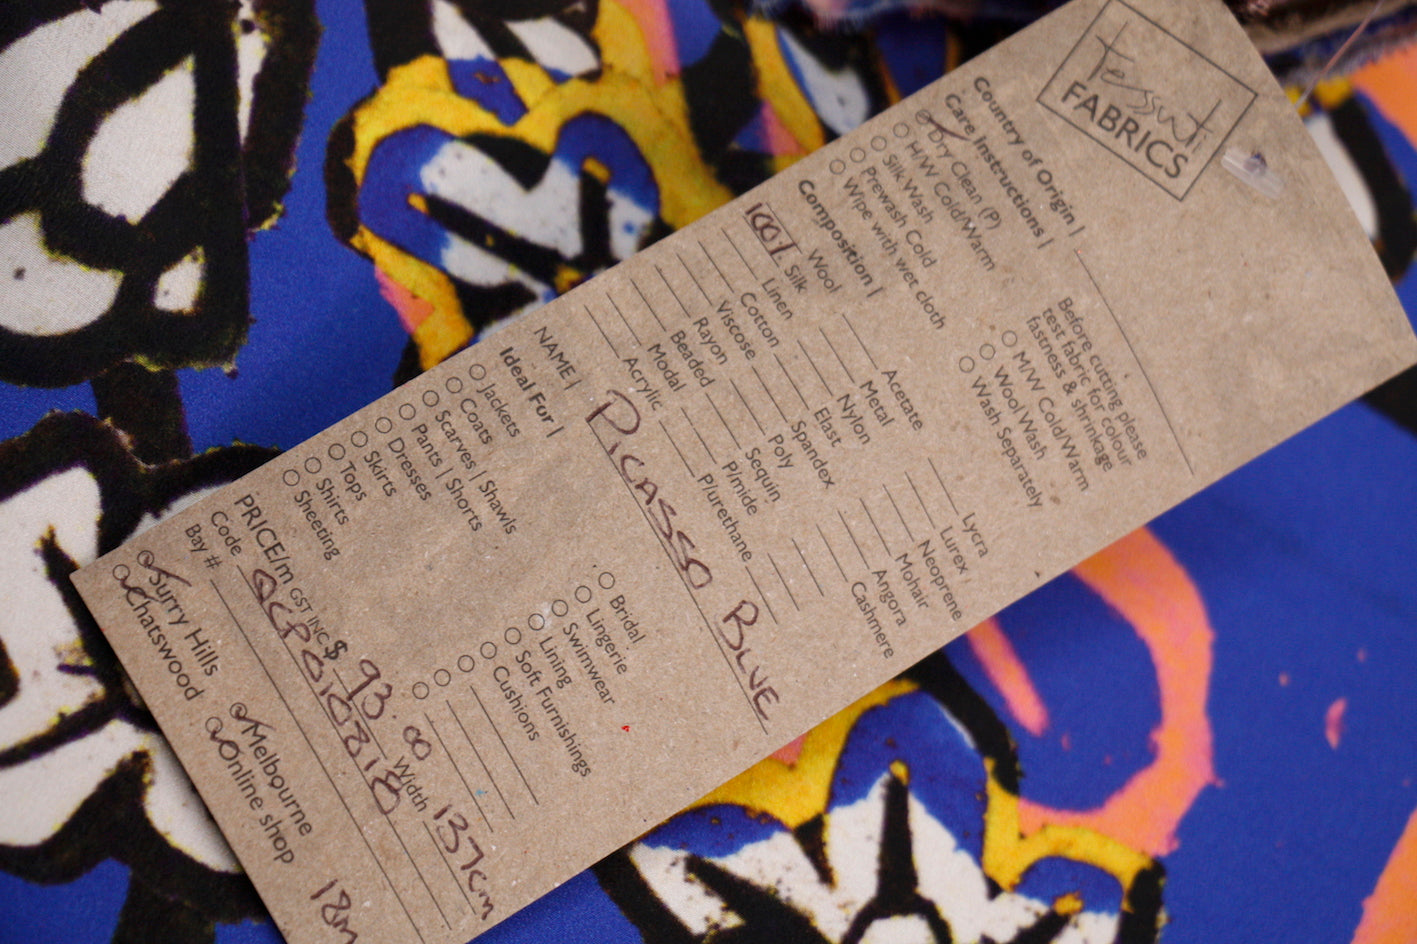 Tessuti
FABRICS
Country of Origin |
Care Instructions |
Dry Clean (P)
H/W Cold/Warm
Silk Wash
Prewash Cold
Wipe with wet cloth
Before cutting please
test fabric for colour
fastness & shrinkage
M/W Cold/Warm
Wool Wash
Wash Separately
Composition |
Wool
100% Silk
Linen
Cotton
Viscose
Rayon
Beaded
Modal
Acrylic
Acetate
Metal
Nylon
Elast
Spandex
Poly
Sequin
P/mide
P/urethane
Lycra
Lurex
Neoprene
Mohair
Angora
Cashmere
NAME | PICASSO BLUE
Ideal For |
Jackets
Coats
Scarves | Shawls
Pants | Shorts
Dresses
Skirts
Tops
Shirts
Sheeting
Bridal
Lingerie
Swimwear
Lining
Soft Furnishings
Cushions
PRICE/m GST INC $ 93.00 Width 137cm
Code
Bay #
Surry Hills
Chatswood
Melbourne
Online shop
18m